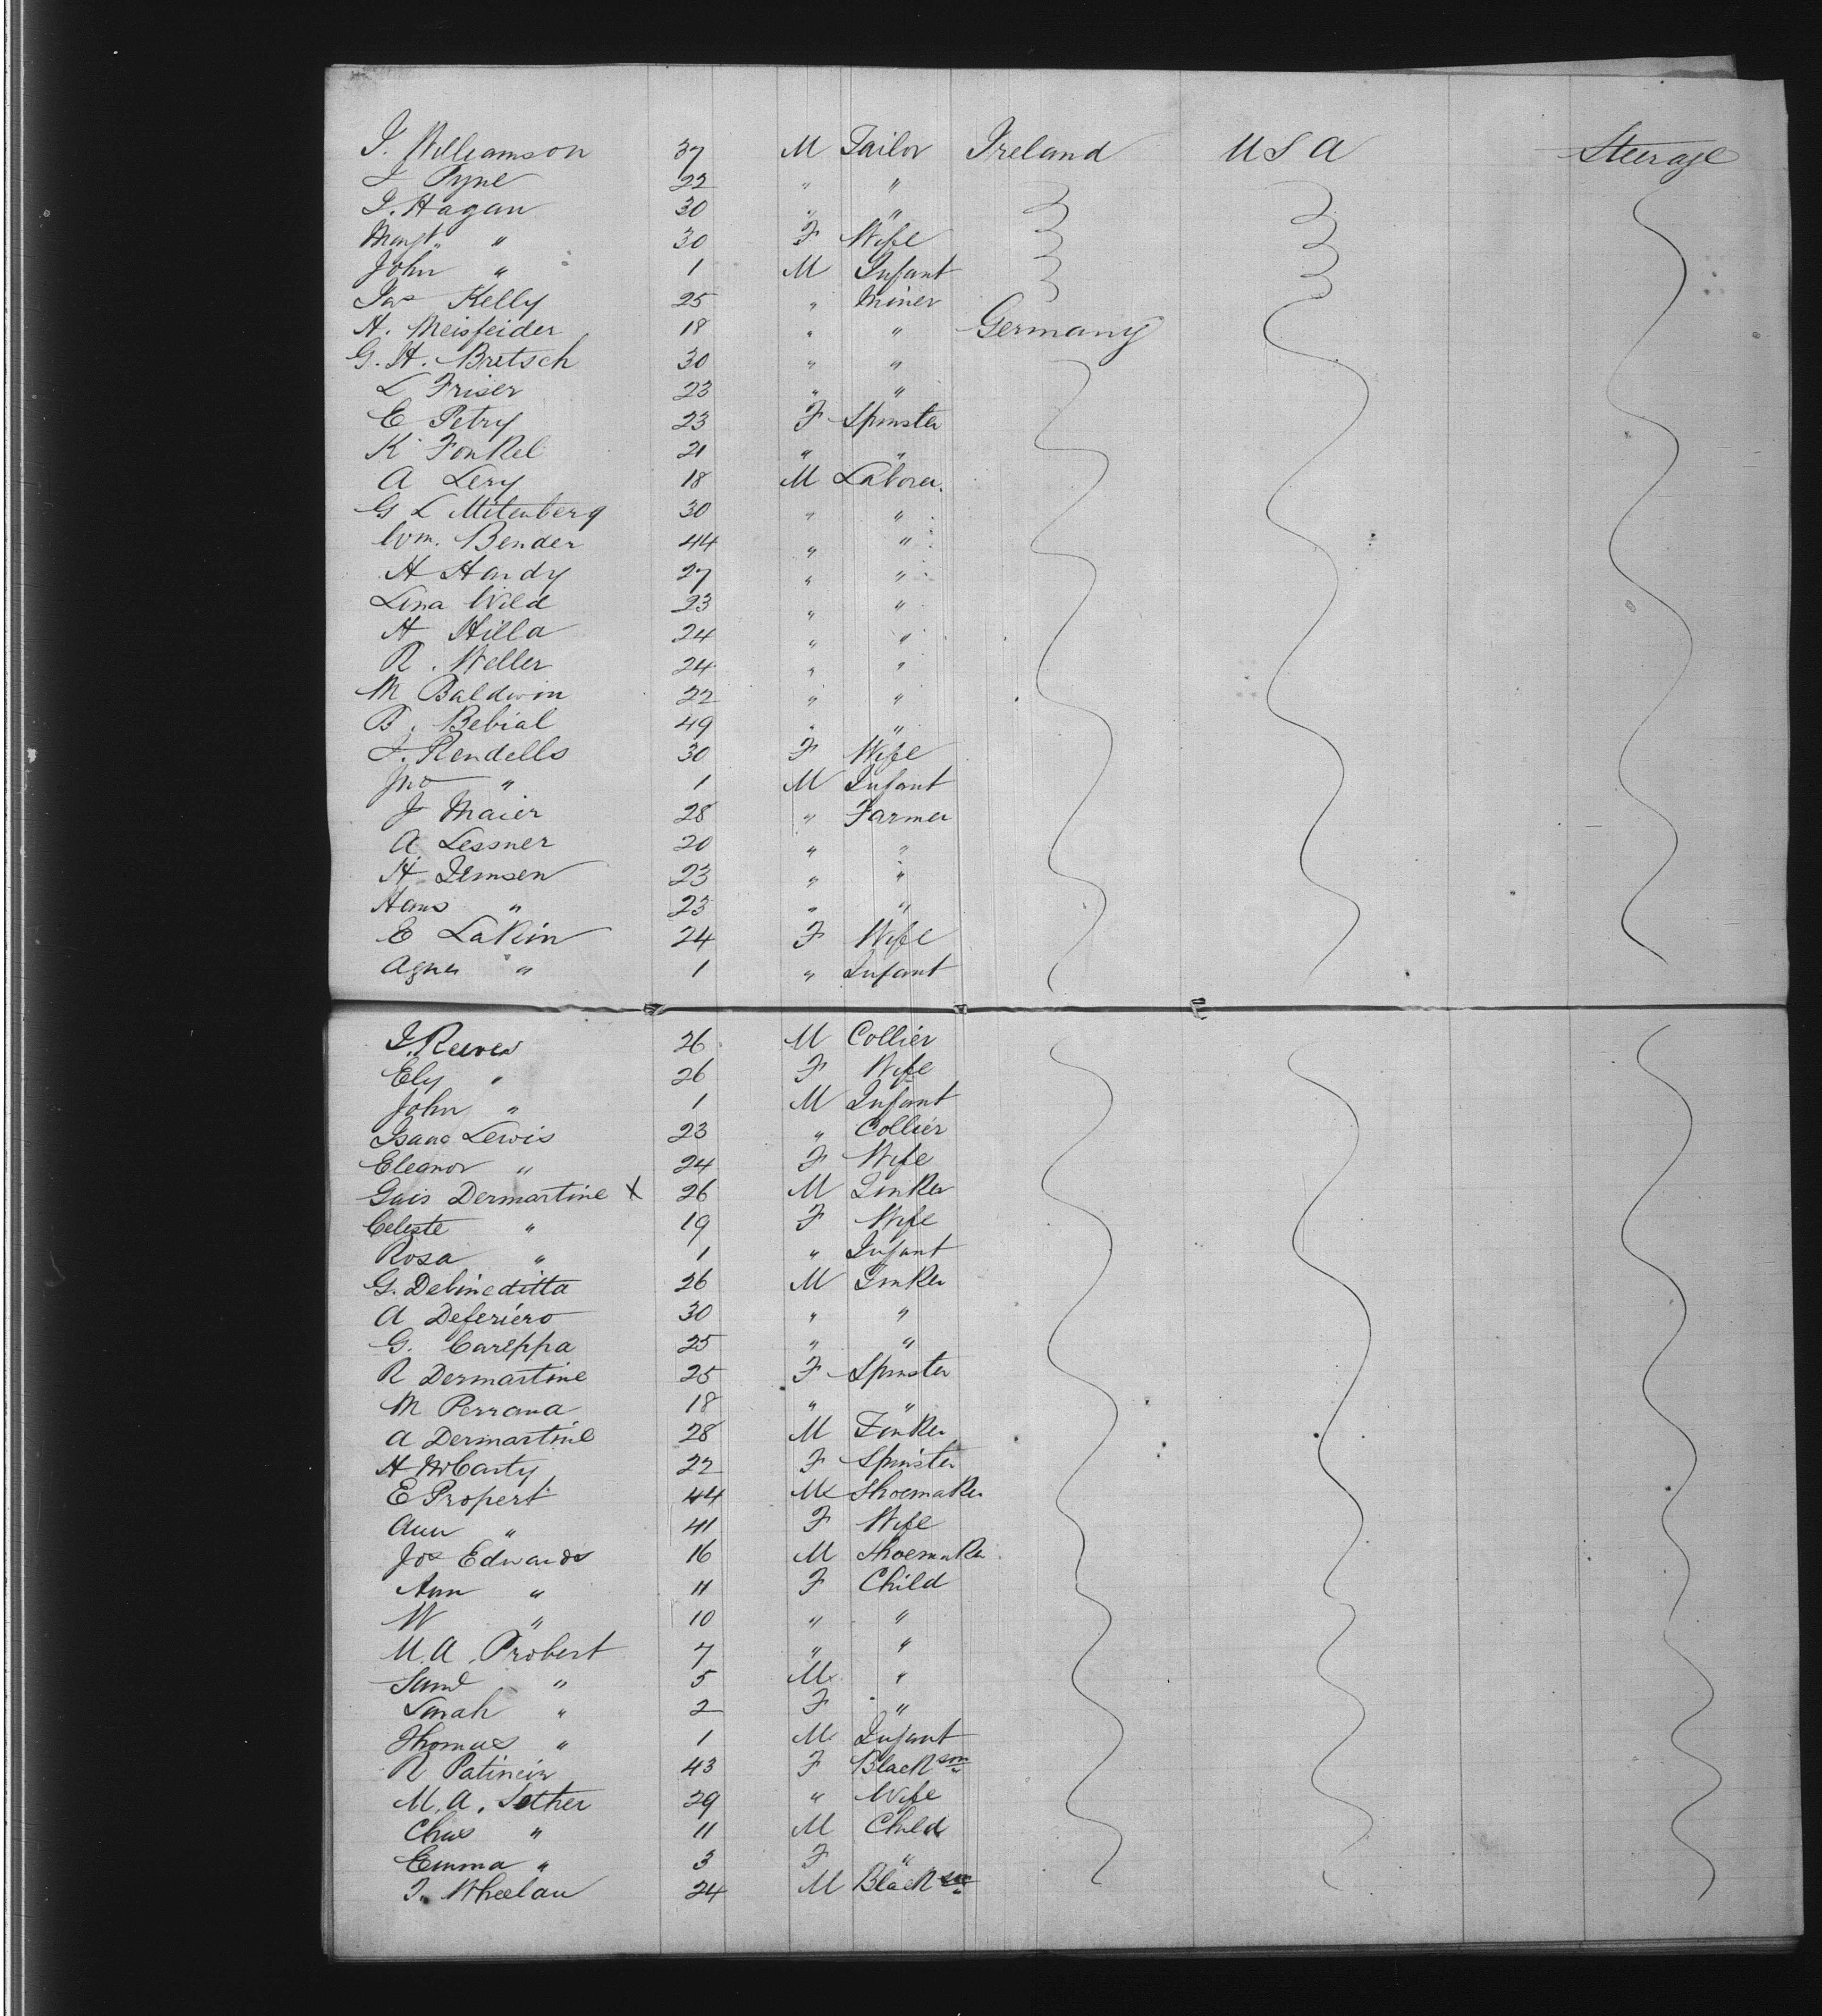 J. Williamson 37 M Tailor Ireland USA Steerage
J Pyne 22 " "
J. Hagan 30 " "
Margt. " 30 F Wife
John " 1 M Infant
Jas Kelly 25 " Miner
H. Meisfeider 18 " " Germany
G. H. Bretsch 30 " "
L Friser 23 " "
E Petry 23 F Spinster
K Fonkel 21 " "
A Lery 18 M Laborer
G L Mitenberg 30 " "
Wm. Bender 44 " "
H Hardy 27 " "
Lina Wild 23 " "
H Hilla 24 " "
R. Weller 24 " "
M Baldwin 22 " "
B. Bebial 49 " "
J. Rendells 30 F Wife
Jno " 1 M Infant
J Maier 28 " Farmer
A Lessner 20 " "
H Jemsen 23 " "
Hans " 23 " "
E Lakin 24 F Wife
Agnes " 1 " Infant
J. Reeves 26 M Collier
Ely " 26 F Wife
John " 1 M Infant
Isaac Lewis 23 " Collier
Eleanor " 24 F Wife
Guis Dermartine X 26 M Tinker
Celeste " 19 F Wife
Rosa " 1 " Infant
G. Debineditta 26 M Tinker
A Deferiero 30 " "
G. Careppa 25 " "
R Dermartine 25 F Spinster
M Perrana 18 " "
A Dermartine 28 M Tinker
H McCarty 22 F Spinster
E Propert 44 M Shoemaker
Ann " 41 F Wife
Jos Edwards 16 M Shoemaker
Ann " 11 F Child
W " 10 " "
M. A. Probert 7 " "
Saml " 5 M "
Sarah " 2 F "
Thomas " 1 M Infant
R 43 F Black
M. A. Sother 29 " Wife
Chas " 11 M Child
Emma " 3 F "
J. Wheelan 24 M Black